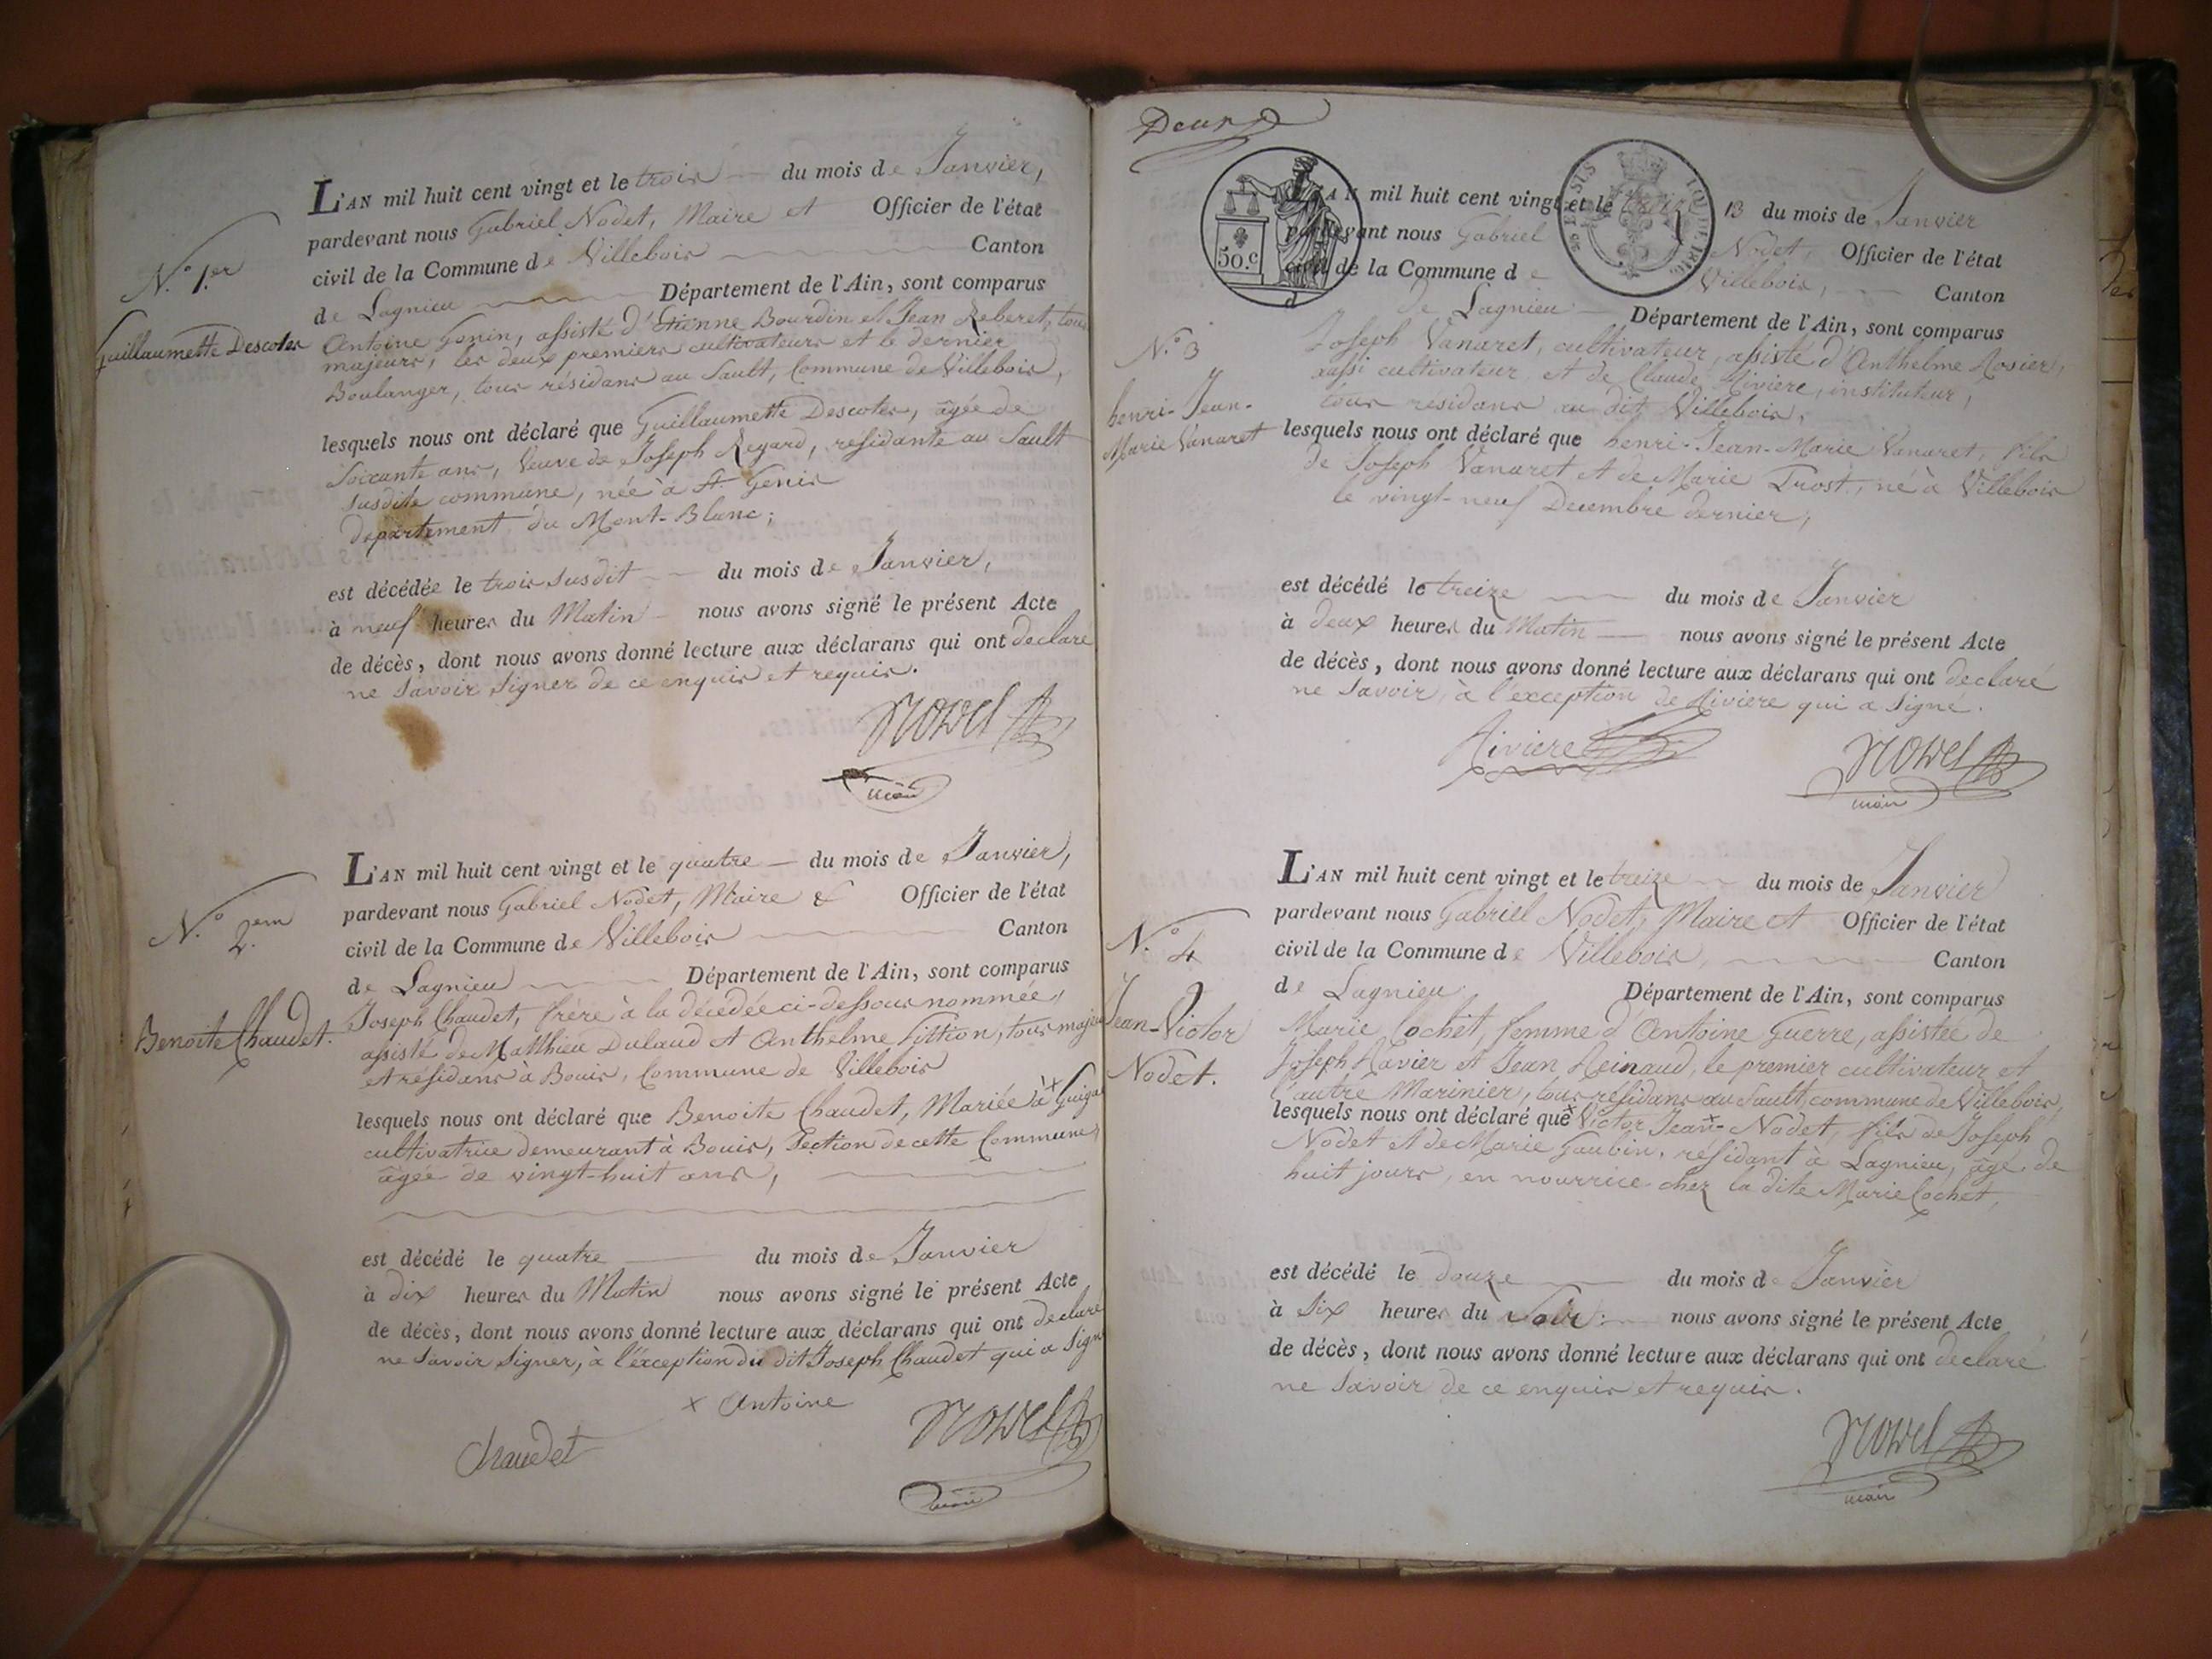 N.º 1.er
Guillaumette Descotes
L'AN mil huit cent vingt et le trois du mois de Janvier,
pardevant nous Gabriel Nodet, Maire et Officier de l'état
civil de la Commune de Villebois Canton
de Lagnieu Département de l'Ain, sont comparus
Antoine Gonin, assisté d'Etienne Bourdin et Jean Reberet, tous
majeurs, les deux premiers cultivateurs et le dernier
Boulanger, tous résidans au Sault, Commune de Villebois,
lesquels nous ont déclaré que Guillaumette Descotes, âgée de
Soixante ans, Veuve de Joseph Regard, résidante au Sault
susdite commune, née à St Genis
département du Mont-Blanc;
est décédée le trois susdit du mois de Janvier,
à neuf heures du Matin nous avons signé le présent Acte
de décès, dont nous avons donné lecture aux déclarans qui ont declaré
ne savoir signer de ce enquis et requis.
Nodet
maire
N.º 2.em
Benoite Chaudet.
L'AN mil huit cent vingt et le quatre du mois de Janvier,
pardevant nous Gabriel Nodet, Maire & Officier de l'état
civil de la Commune de Villebois Canton
de Lagnieu Département de l'Ain, sont comparus
Joseph Chaudet, frère à la décédée ci-dessous nommée,
assisté de Matthieu Dulaud et Anthelme Fittion, tous majeurs
et résidans à Bouis, Commune de Villebois
lesquels nous ont déclaré que Benoite Chaudet, Mariée à x Guigas
cultivatrice demeurant à Bouis, Section de cette Commune,
âgée de vingt-huit ans,
est décédé le quatre du mois de Janvier
à dix heures du Matin nous avons signé le présent Acte
de décès, dont nous avons donné lecture aux déclarans qui ont declaré
ne savoir signer, à l'éxception du dit Joseph Chaudet qui a signé
x Antoine
Chaudet
Nodet
maire
Deux
50.c
L'AN mil huit cent vingt et le treize 13 du mois de Janvier
pardevant nous Gabriel Nodet, Officier de l'état
civil de la Commune de Villebois, Canton
de Lagnieu Département de l'Ain, sont comparus
N.º 3
henri-Jean-
Marie Vanaret
Joseph Vanaret, cultivateur, assisté d'Anthelme Rosier,
aussi cultivateur et de Claude Riviere, instituteur,
tous residans au dit Villebois,
lesquels nous ont déclaré que henri-Jean-Marie Vanaret, fils
de Joseph Vanaret et de Marie Trost, né à Villebois
le vingt-neuf Decembre dernier,
est décédé le treize du mois de Janvier
à deux heures du Matin nous avons signé le présent Acte
de décès, dont nous avons donné lecture aux déclarans qui ont declaré
ne savoir, à l'éxception de Riviere qui a signé.
Riviere
Nodet
maire
N.º 4
Jean-Victor
Nodet.
L'AN mil huit cent vingt et le treize du mois de Janvier
pardevant nous Gabriel Nodet, Maire et Officier de l'état
civil de la Commune de Villebois, Canton
de Lagnieu Département de l'Ain, sont comparus
Marie Cochet, femme d'Antoine Guerre, assistée de
Joseph Ravier et Jean Reinaud, le premier cultivateur et
l'autre Marinier, tous résidans au Sault, commune de Villebois,
lesquels nous ont déclaré que x Victor Jean x Nodet, fils de Joseph
Nodet et de Marie Gaubin, résidant à Lagnieu, âgé de
huit jours, en nourrice chez la dite Marie Cochet,
est décédé le douze du mois de Janvier
à six heures du Soir: nous avons signé le présent Acte
de décès, dont nous avons donné lecture aux déclarans qui ont declaré
ne savoir de ce enquis et requis.
Nodet
maire